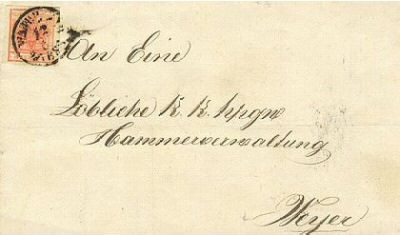 An Eine
Löbliche K. K. hpgw
Hammerverwaltung
Weyer